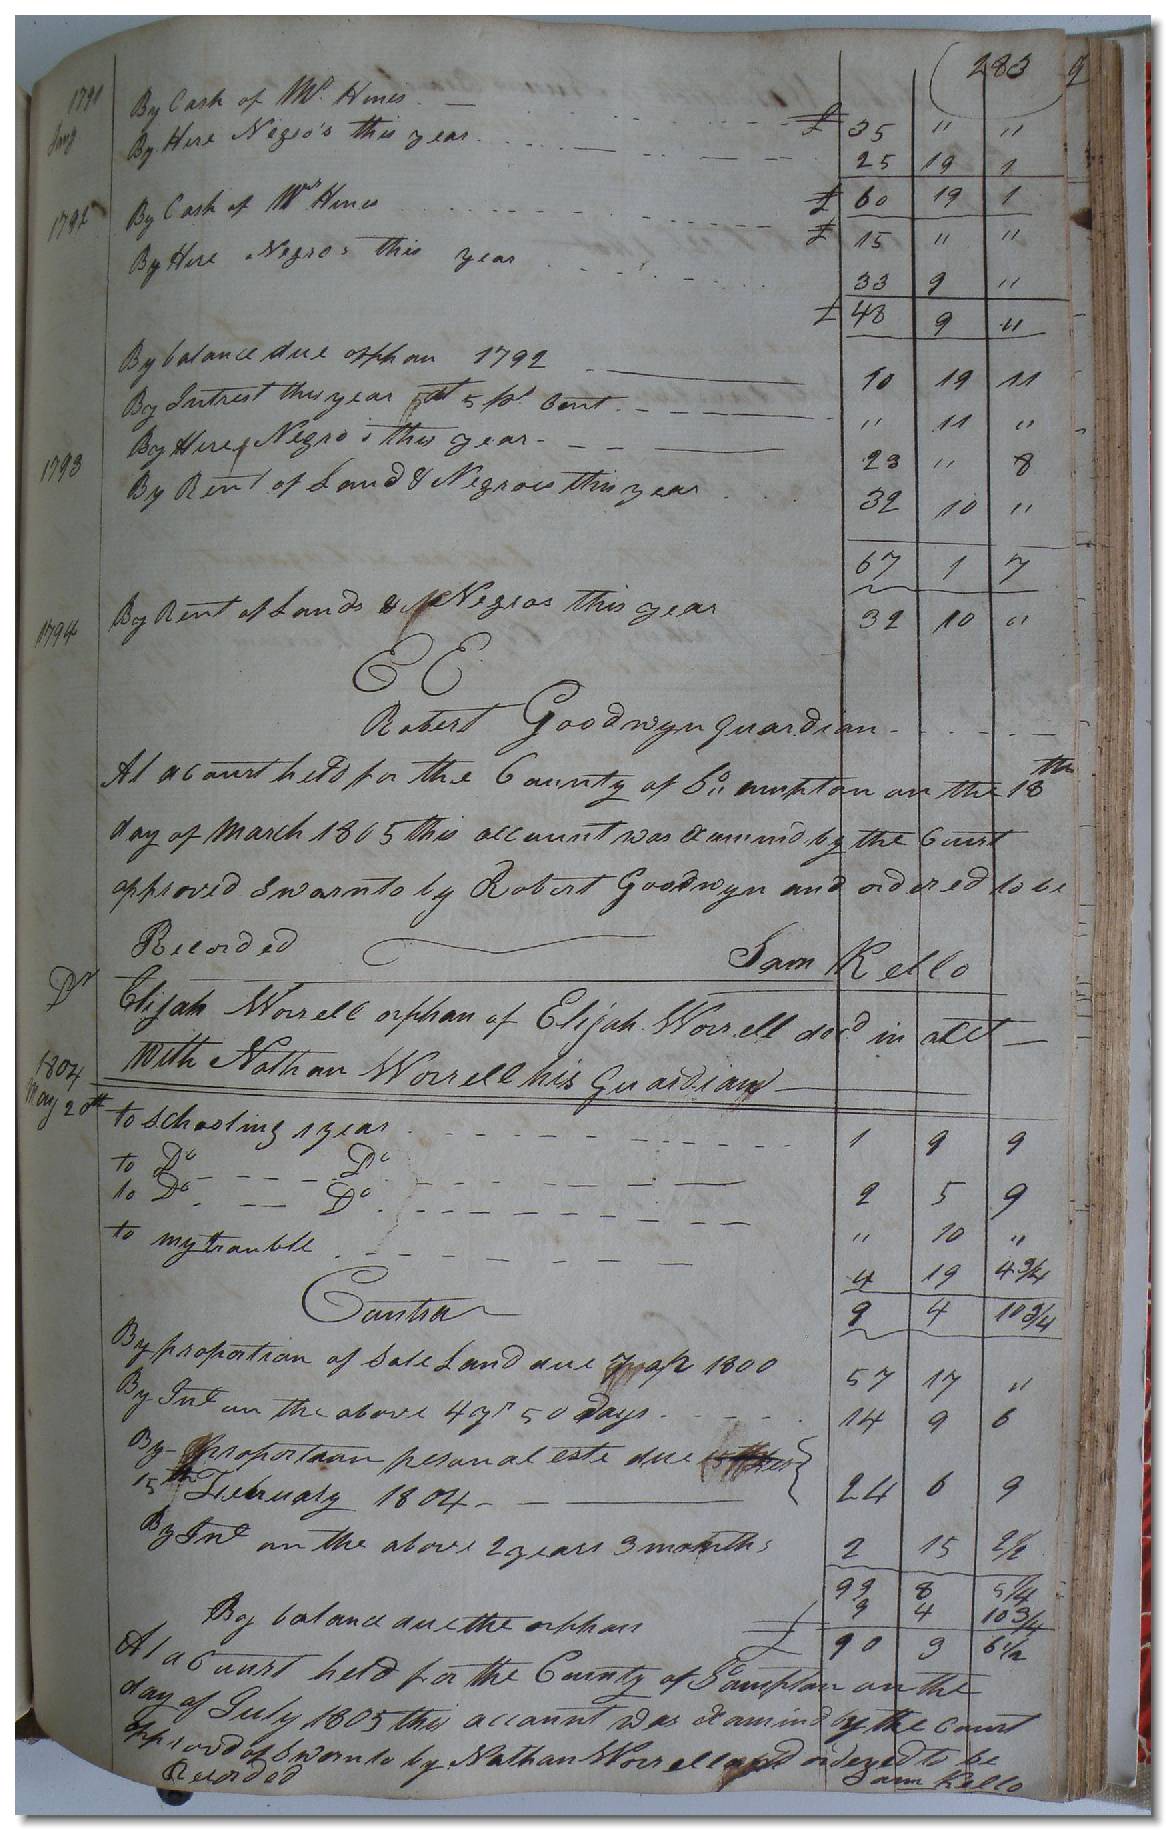 283
1791 By Cash of Mr. Hines £ 35 " "
Jany By Hire Negro's this year 25 19 1
£ 60 19 1
1792 By Cash of Mrs Hines £ 15 " "
By Hire Negro's this year 33 9 "
£ 48 9 "
By balance due orphan 1792 10 19 11
By Intrest this year at 5 pr Cent " 11 "
By Hire Negro's this year 23 " 8
1793 By Rent of Land & Negroes this year 32 10 "
67 1 7
1794 By Rent of Lands & Negros this year 32 10 "
E E
Robert Goodwyn guardian
At a Court held for the County of So. ampton on the 18th
day of March 1805 this account was Examined by the Court
approved Sworn to by Robert Goodwyn and ordered to be
Recorded Sam Kello
Dr Elijah Worrell orphan of Elijah Worrell decd in acct
With Nathan Worrell his Guardian
1804
May 20th to schooling 1 year 1 9 9
to Do Do
to Do Do 2 5 9
" 10 "
to my trouble 4 19 4 3/4
Contra 9 4 10 3/4
By proportion of Sale Land due apr 1800 57 17 "
By Int on the above 4 yrs 50 days 14 9 6
By proportion personal este due
15th Feburary 1804 24 6 9
By Int on the above 2 years 3 months 2 15 2 1/2
99 8 5 1/4
9 4 10 3/4
By balance due the orphan £ 90 3 6 1/2
At a Court held for the County of Sampton on the
day of July 1805 this account was Examined by the Court
approvd of Sworn to by Nathan Worrell and ordered to be
Recorded Sam Kello